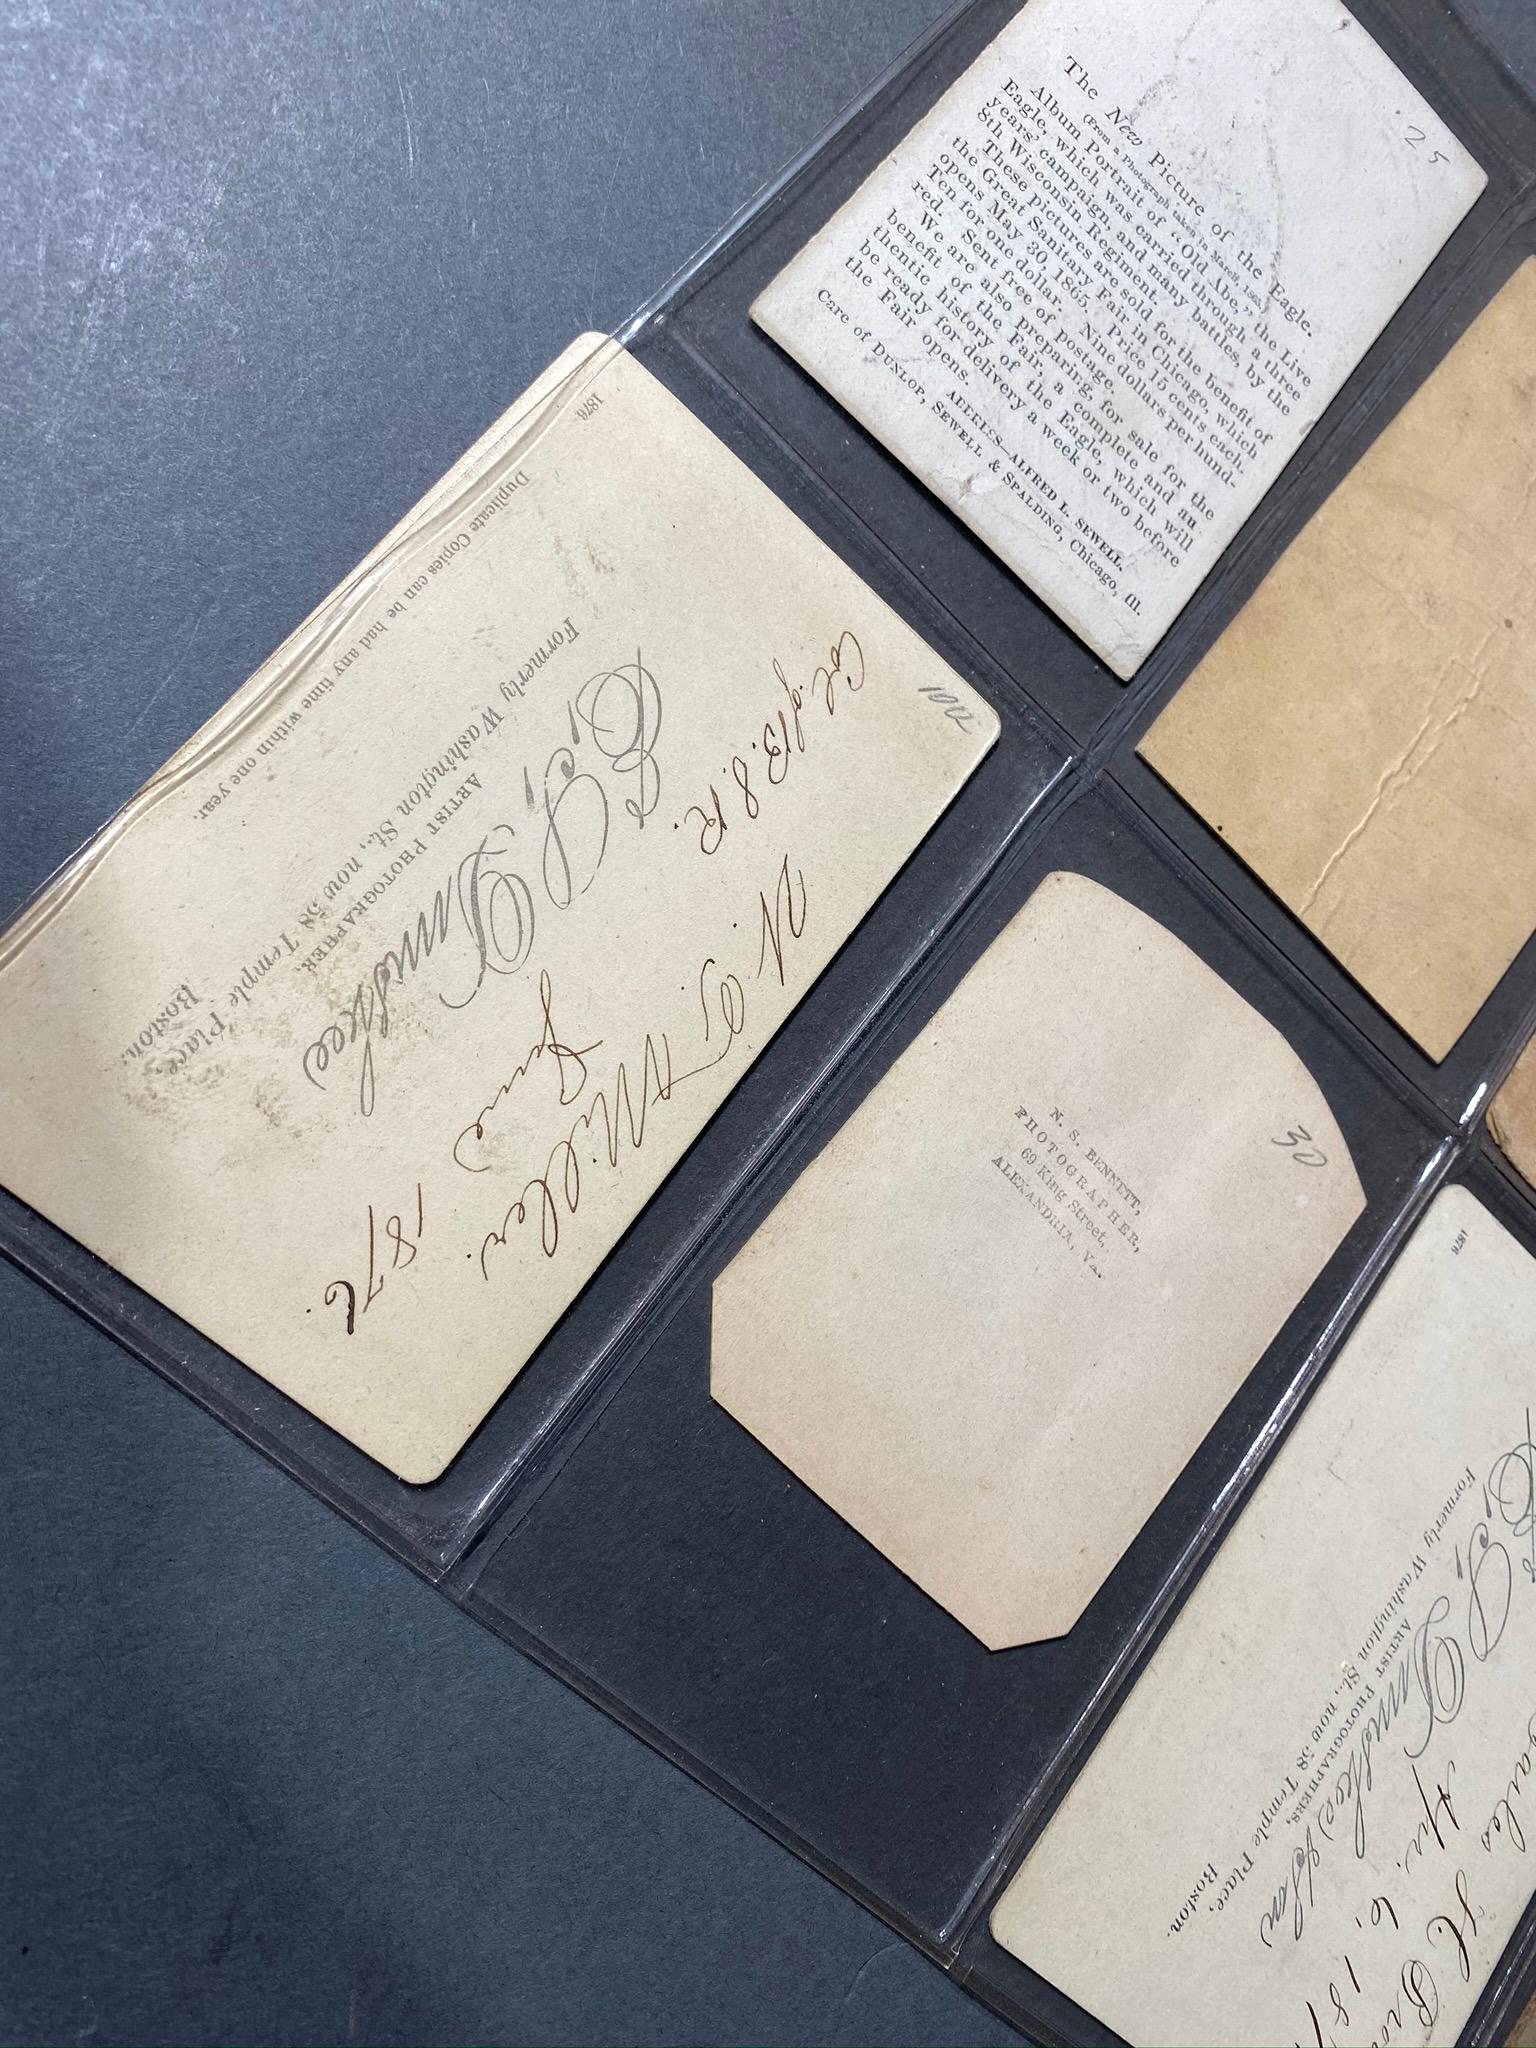 25
The New Picture of the Eagle.
(From a Photograph taken in March, 1865.)
Album Portrait of "Old Abe," the Live
Eagle, which was carried through a three
years' campaign, and many battles, by the
8th Wisconsin Regiment.
These pictures are sold for the benefit of
the Great Sanitary Fair in Chicago, which
opens May 30, 1865. Price 15 cents each.
Ten for one dollar. Nine dollars per hund-
red. Sent free of postage.
We are also preparing, for sale for the
benefit of the Fair, a complete and au
thentic history of the Eagle, which will
be ready for delivery a week or two before
the Fair opens.
ADDRESS—ALFRED L. SEWELL.
Care of DUNLOP, SEWELL & SPALDING, Chicago, Ill.
100
W. T. Miller.
June 1876.
ARTIST PHOTOGRAPHER,
Formerly Washington St., now 58 Temple Place,
Boston.
Duplicate Copies can be had any time within one year.
1876
30
N. S. BENNETT,
PHOTOGRAPHER,
69 King Street,
ALEXANDRIA, Va.
1876
H. Bro
6, 187
ARTIST PHOTOGRAPHERS,
Formerly Washington St., now 58 Temple Place,
Boston.